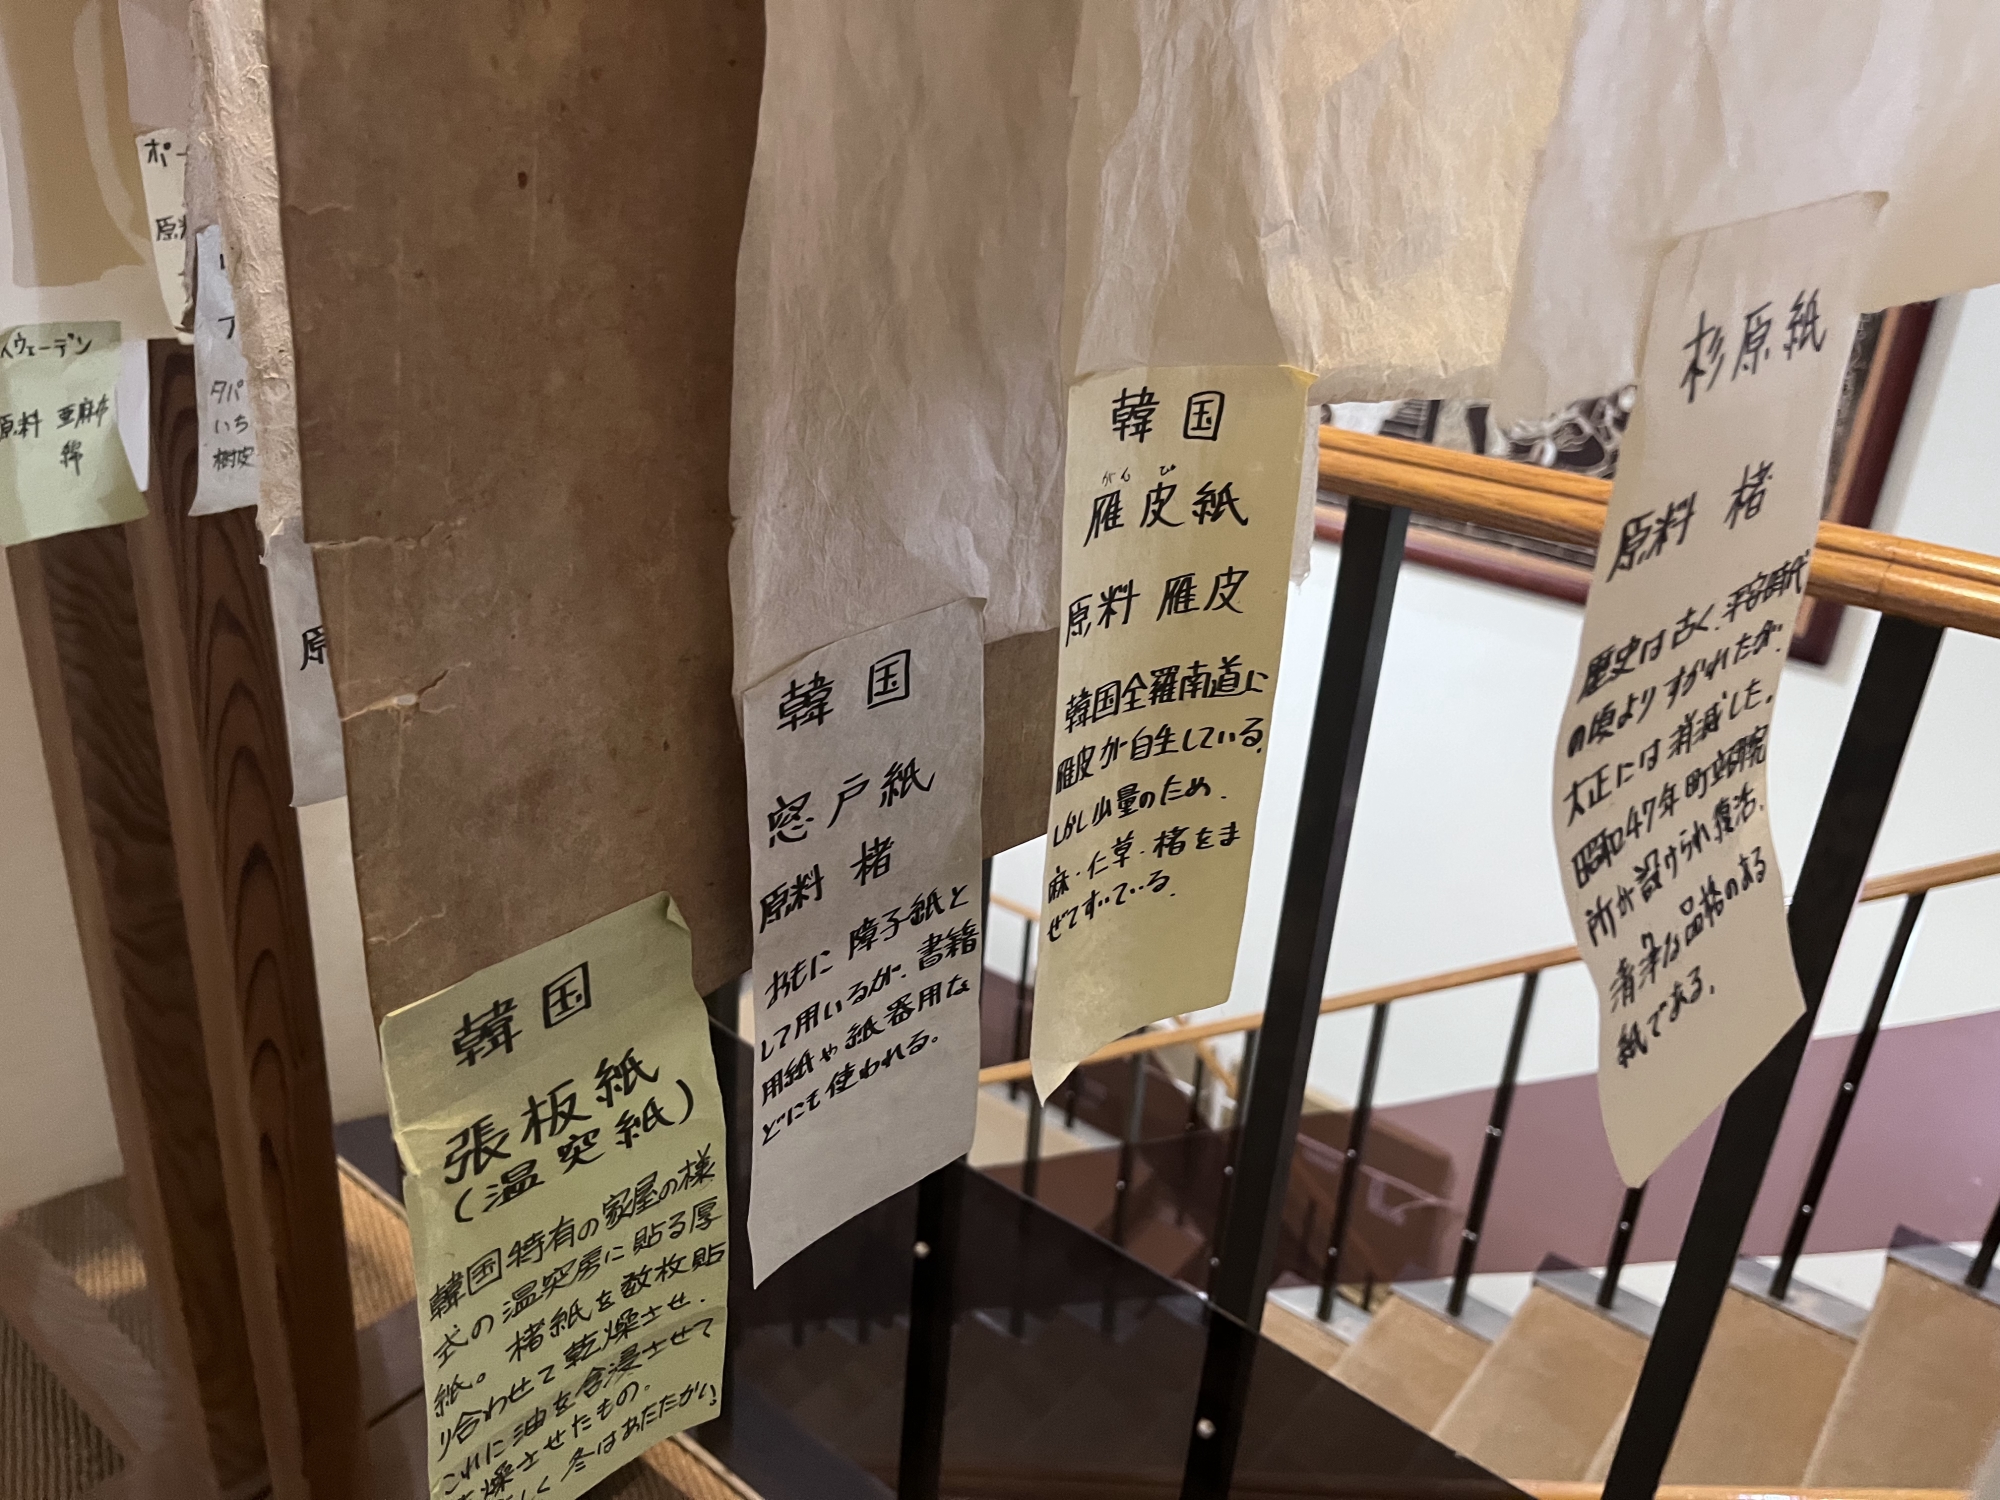 スウェーデン
原料 亜麻布
綿
ポー
原料
ア
タパ
いち
樹皮
原
韓国
張板紙
(温突紙)
韓国特有の家屋の様
式の温突房に貼る厚
紙。楮紙を数枚貼
り合わせて乾燥させ.
これに油を含浸させて
燥させたもの。
しく冬はあたたかい
韓国
窓戸紙
原料 楮
おもに障子紙と
して用いるが、書籍
用紙や紙器用な
どにも使われる。
韓国
がんぴ
雁皮紙
原料 雁皮
韓国全羅南道に
雁皮が自生している.
しかし少量のため.
麻・仁草・楮をま
ぜてすいている.
杉原紙
原料 楮
歴史は古く、平安時代
の頃よりすかれたが.
大正には消滅した.
昭和47年町立研究
所が設けられ、復活.
清浄な品格のある
紙である.